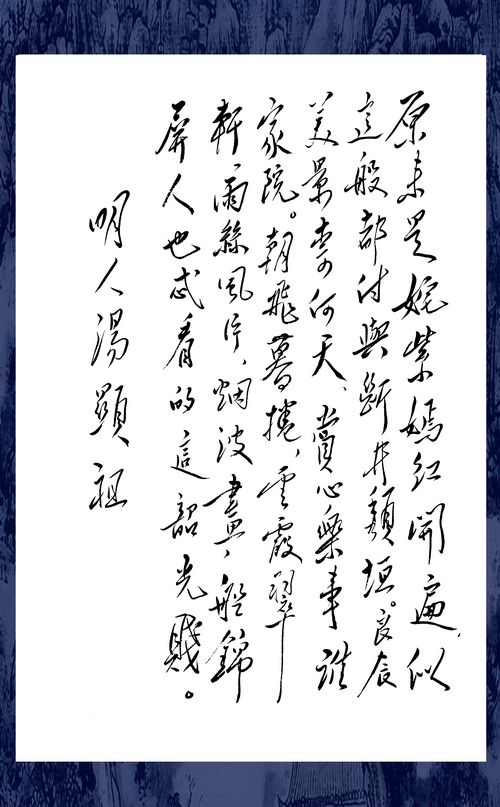 原来是姹紫嫣红開遍,似
這般都付與斷井頹垣。良辰
美景奈何天、賞心樂事誰
家院。朝飛暮捲、雲霞翠
軒,雨絲風片、烟波畫,船錦
屏人也忒看的這韶光賤。
明人湯顯祖